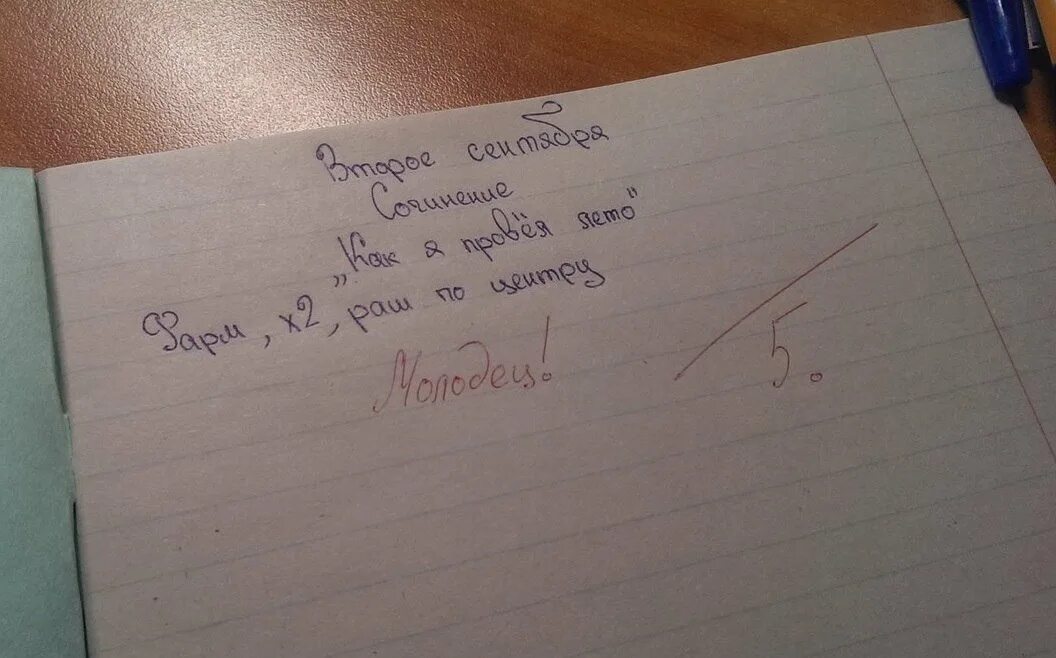 Второе сентября
Сочинение
„Как я провёл лето"
Фарм, х2, раш по центру
Молодец!
5.